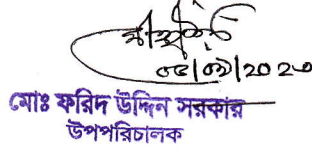 ০৮/০৯/২০২০
মোঃ ফরিদ উদ্দিন সরকার
উপপরিচালক